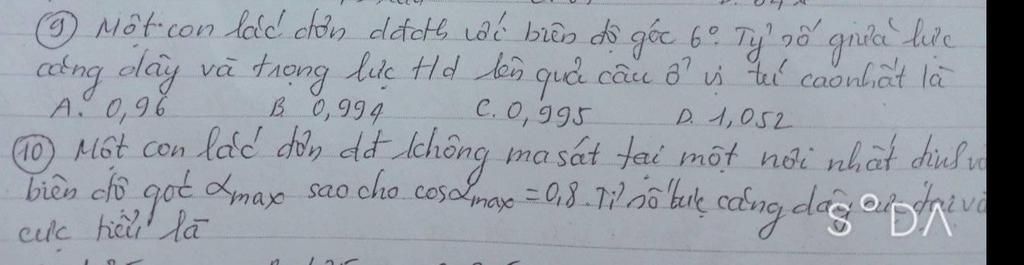 ⑨ Một con lắc đơn dđđh với biên độ góc 6°. Tỷ số giữa lực
căng dây và trọng lực t/d lên quả cầu ở vị trí cao nhất là
A. 0,96 B. 0,994 C. 0,995 D. 1,052
⑩ Một con lắc đơn dđ không ma sát tại một nơi nhất định
biên độ góc αmax sao cho cosαmax = 0,8. Tỉ số lực căng dây
cực tiểu là
SODA